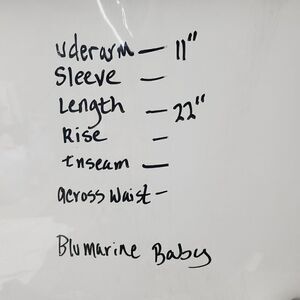 uderarm — 11"
Sleeve —
Length — 22"
Rise —
Inseam —
across Waist -
Blumarine Baby